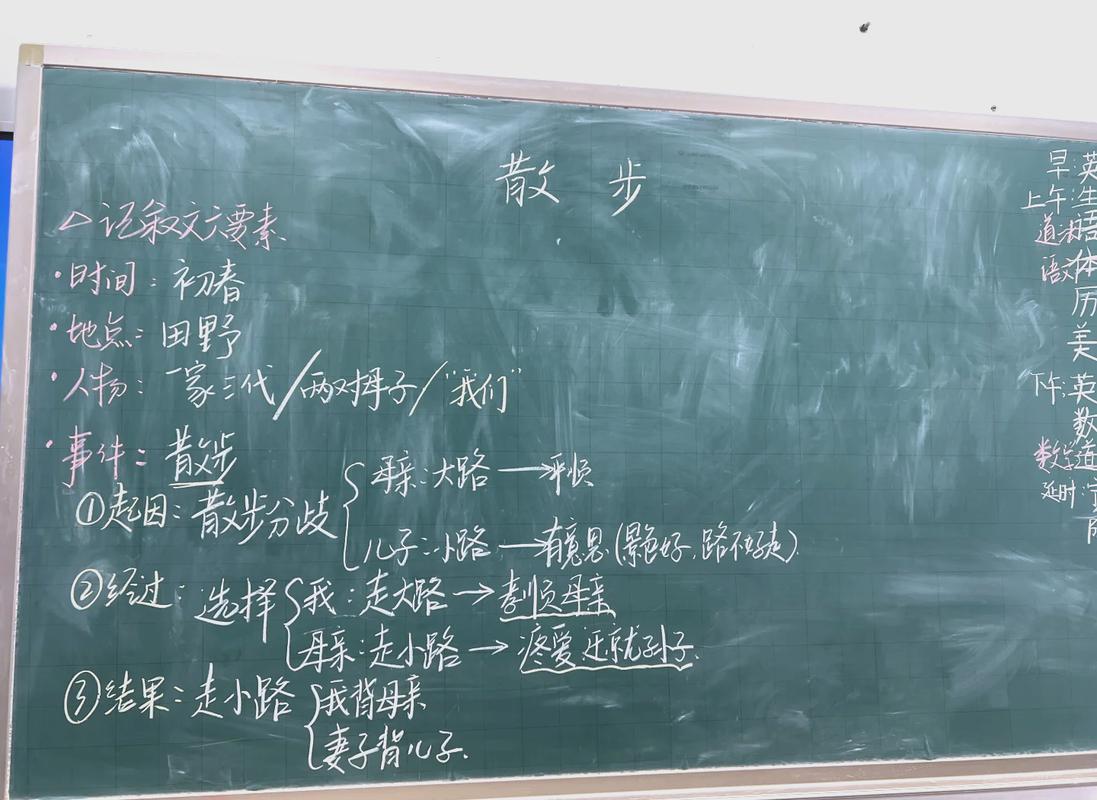 散 步
△记叙文六要素
·时间：初春
·地点：田野
·人物：一家三代/两对母子/“我们”
·事件：散步
①起因：散步分歧
母亲：大路→平顺
儿子：小路→有意思(景色好，路不好走)
②经过：选择
我：走大路→孝顺母亲
母亲：走小路→疼爱迁就孙子.
③结果：走小路
我背母亲
妻子背儿子.
早：英
上午：生
语
道法
语文 体
历
美
下午：英
数
数学 道
延时：